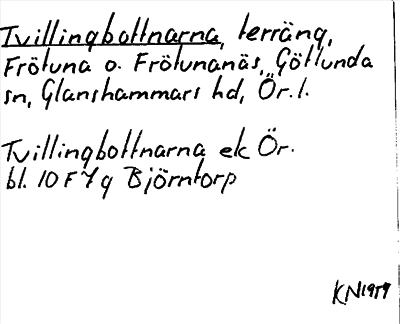 Tvillingbottnarna, terräng,
Frötuna o. Frötunanäs, Götlunda
sn, Glanshammars hd, Ör. l.
Tvillingbottnarna ek Ör.
bl. 10 F 7 g Björntorp
KN 1979